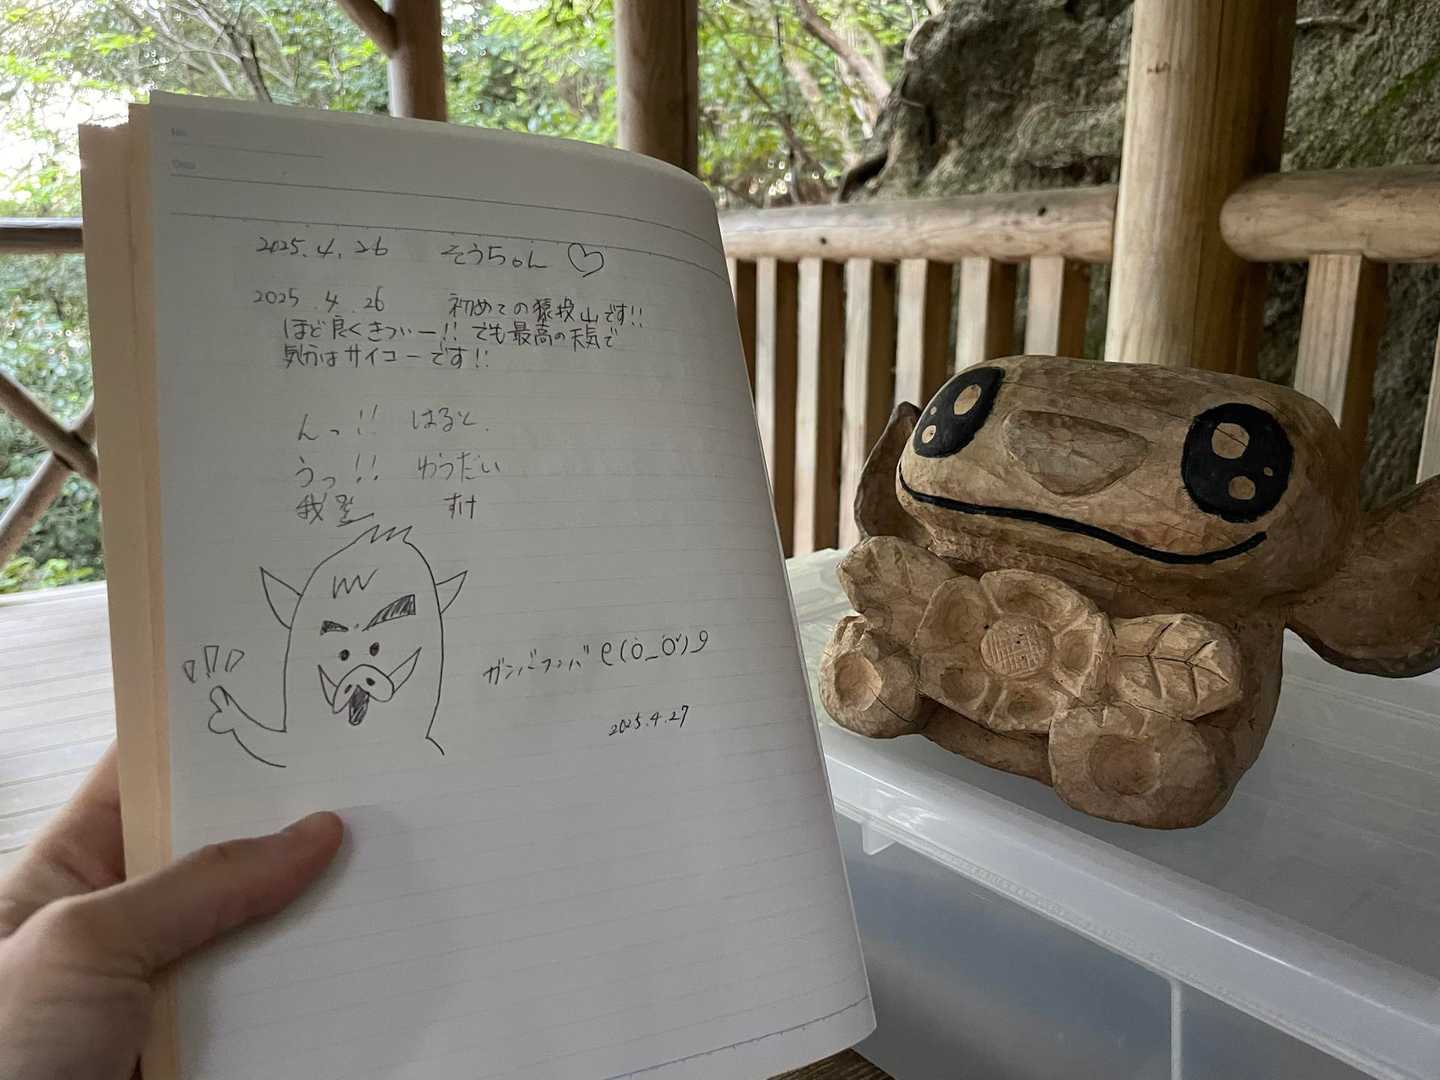 No.
Date
2025.4.26 そうちゃん ♡
2025.4.26 初めての猿投山です!!
ほど良くきつい一!! でも最高の天気で
気分はサイコーです!!
んっ!! はると.
うっ!! ゆうだい
我登 すけ
ガンバランバ e(ò_ó)9
2025.4.27